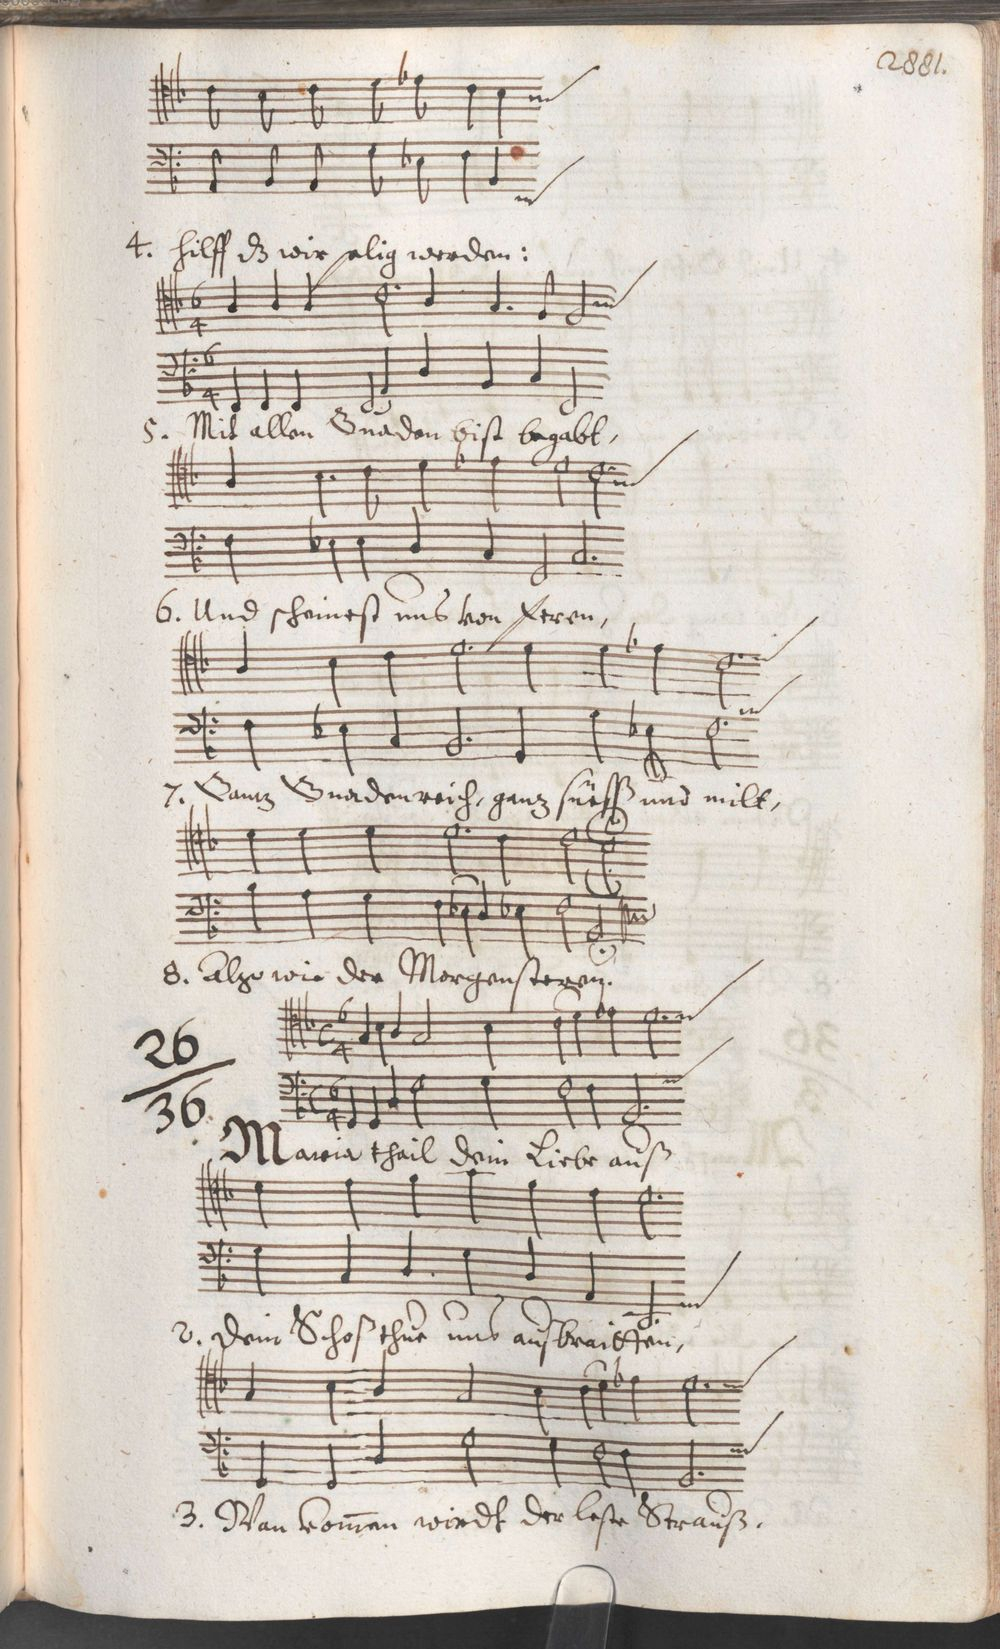 2881.
4. hilff dz wir selig werden:
5. Mit allen Gnaden bist begabt,
6. Und scheinest uns von feren,
7. Gantz Gnadenreich, ganz süeß und milt,
8. Alß wie der Morgensteren.
26
36.
Maria thail dein Liebe auß
2. Dein Schoß thue uns außbraitten,
3. Wan komen wirdt der leste Strauß.